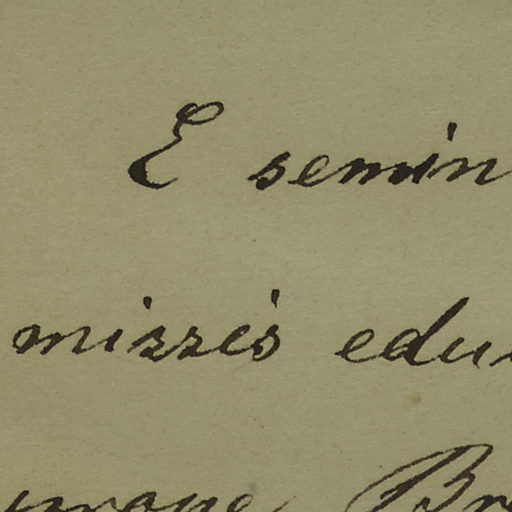 E semin
missis edu
Br